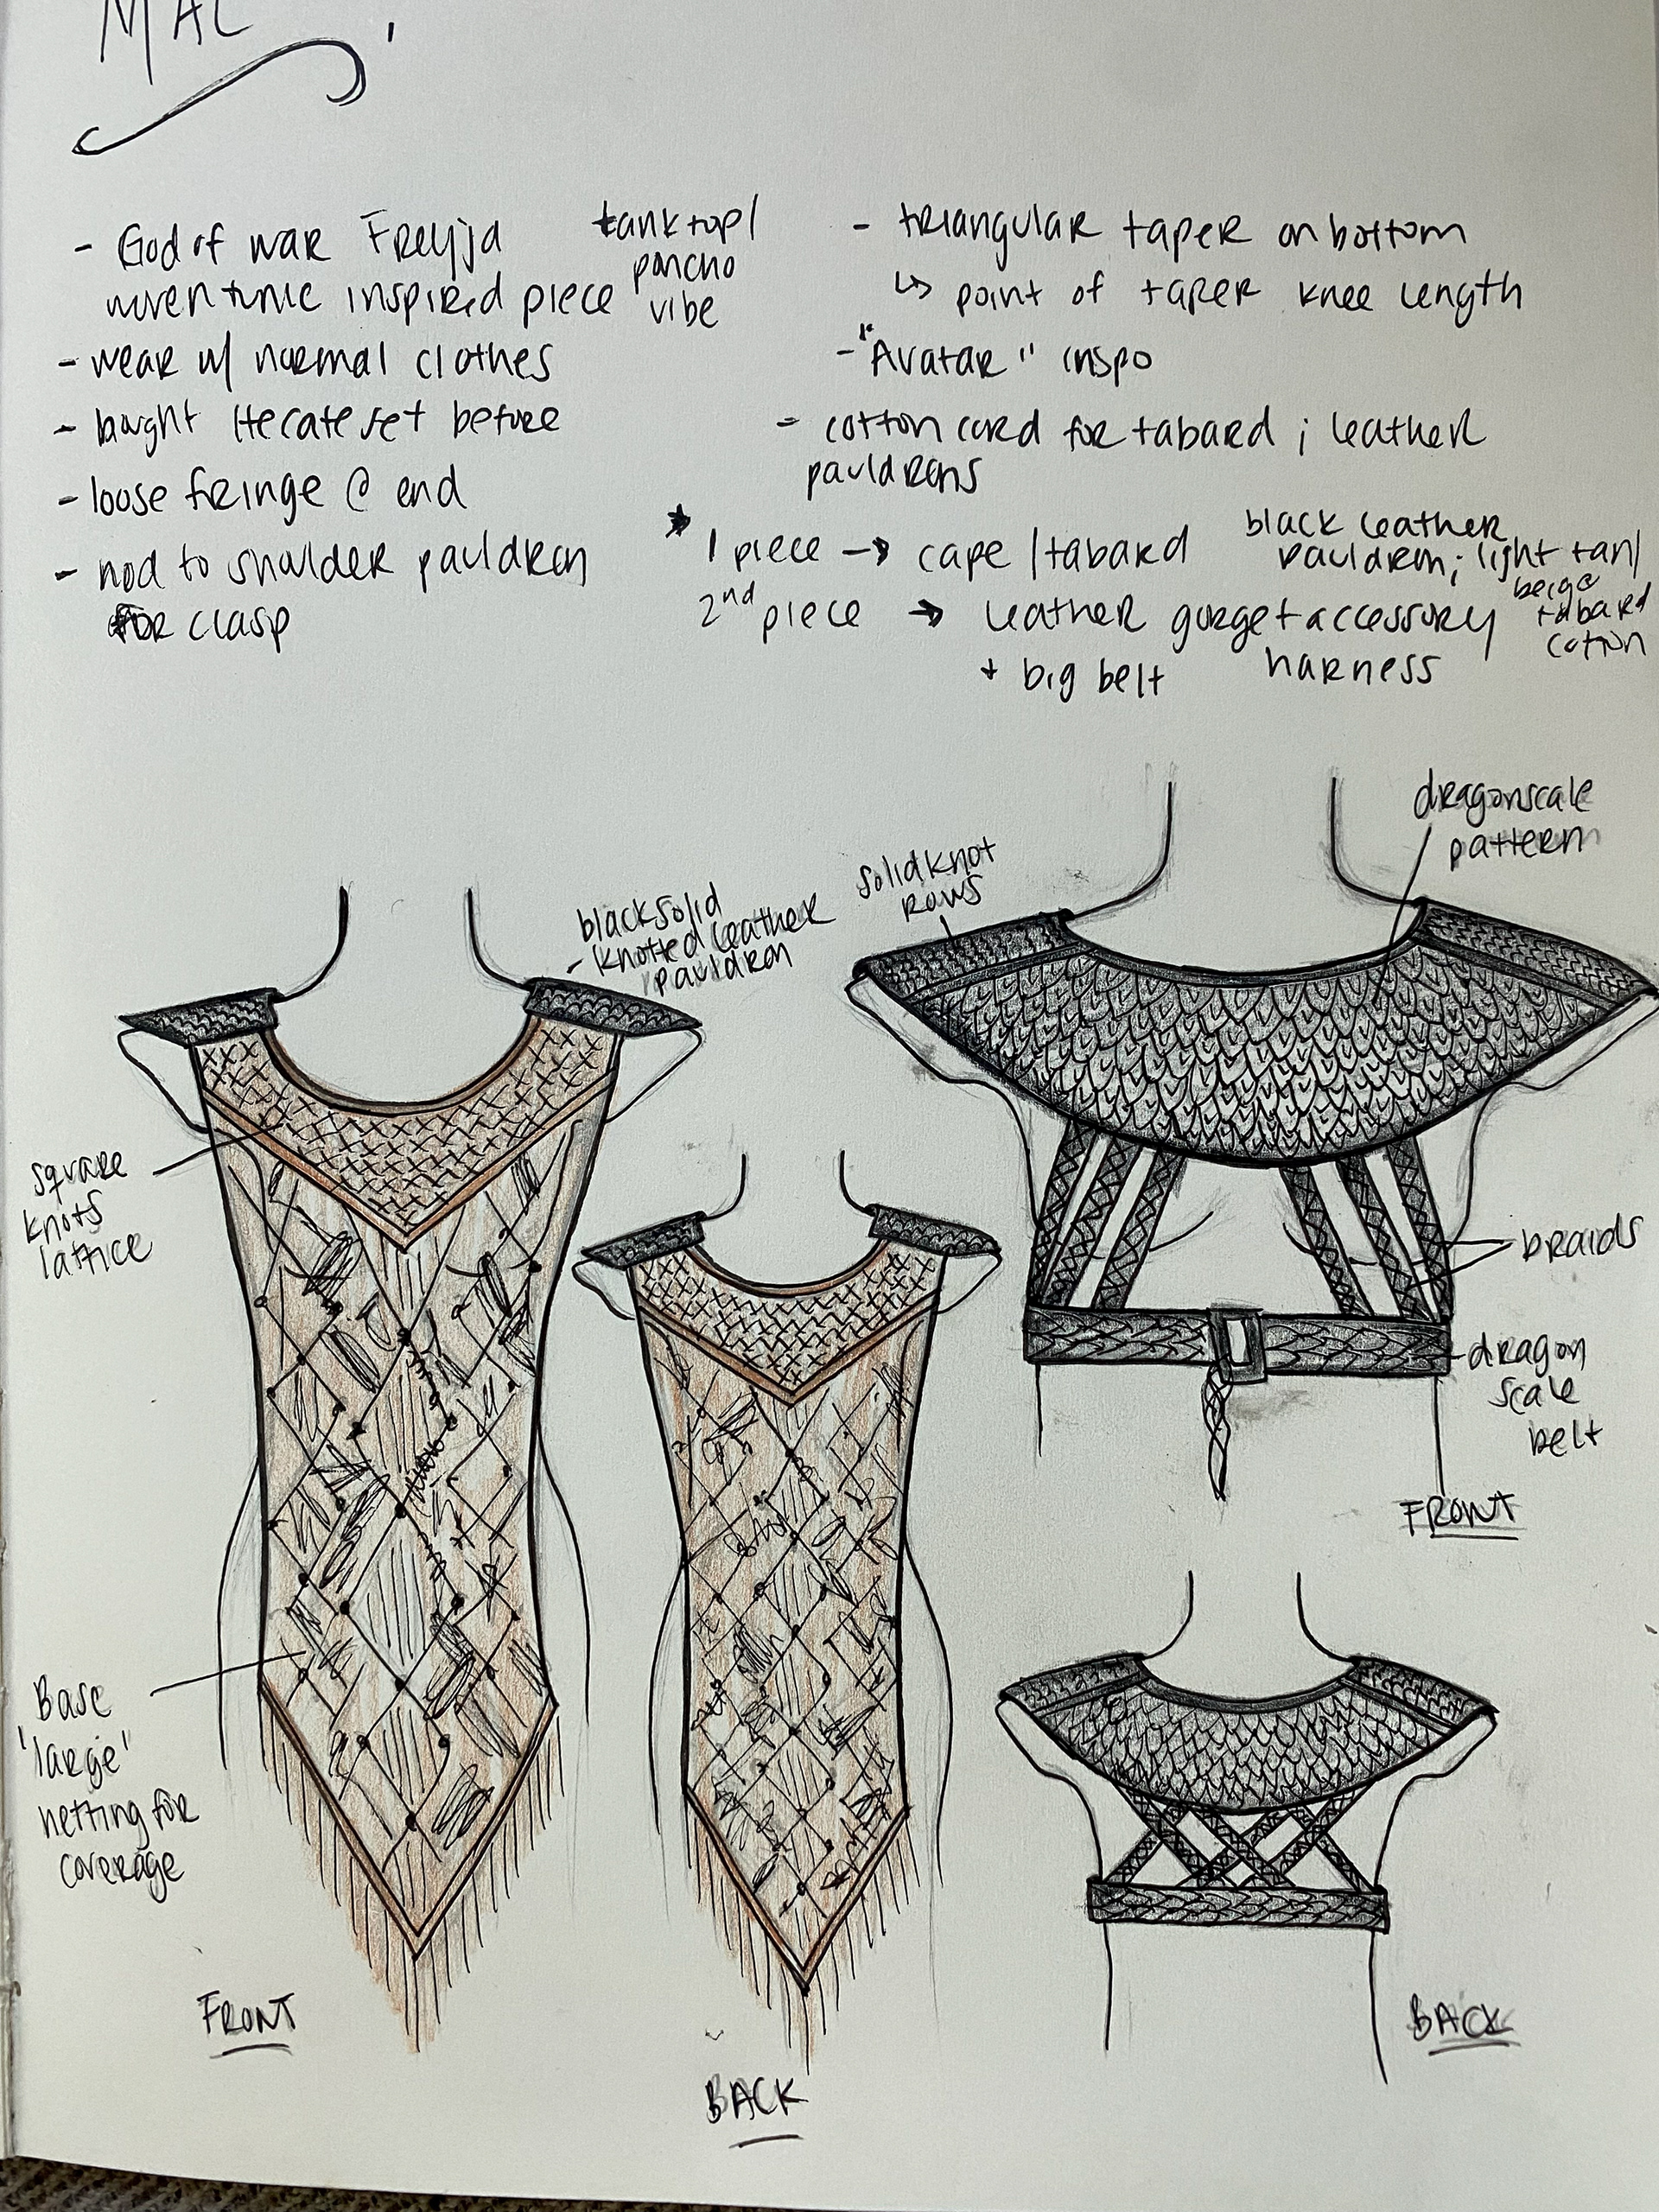 MAL
- God of war Freyja
woven tunic inspired piece
tank top/
poncho
vibe
- wear w/ normal clothes
- bought Hecate set before
- loose fringe @ end
- nod to shoulder pauldron
for clasp
- triangular taper on bottom
↳ point of taper knee length
- "Avatar" inspo
- cotton cord for tabard ; leather
pauldrons
★ 1 piece → cape / tabard
2nd piece → leather gorget + accessory
+ big belt harness
black leather
pauldron; light tan/
beige
tabard
cotton
black solid
- knotted leather
pauldron
solid knot
rows
dragonscale
pattern
square
knots
lattice
braids
dragon
scale
belt
FRONT
Base
'large'
netting for
coverage
FRONT
BACK
BACK